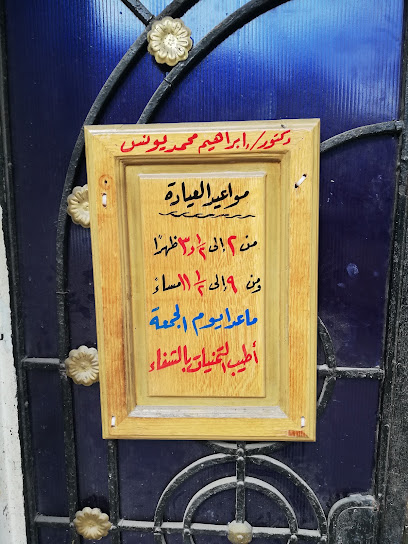 دكتور/ ابراهيم محمد يونس
مواعيد العيادة
من ٢ إلى ١/٢ و٣ ظهرًا
ومن ٩ إلى ١/٢ ١١ مساءً
ماعدا يوم الجمعة
أطيب التمنيات بالشفاء